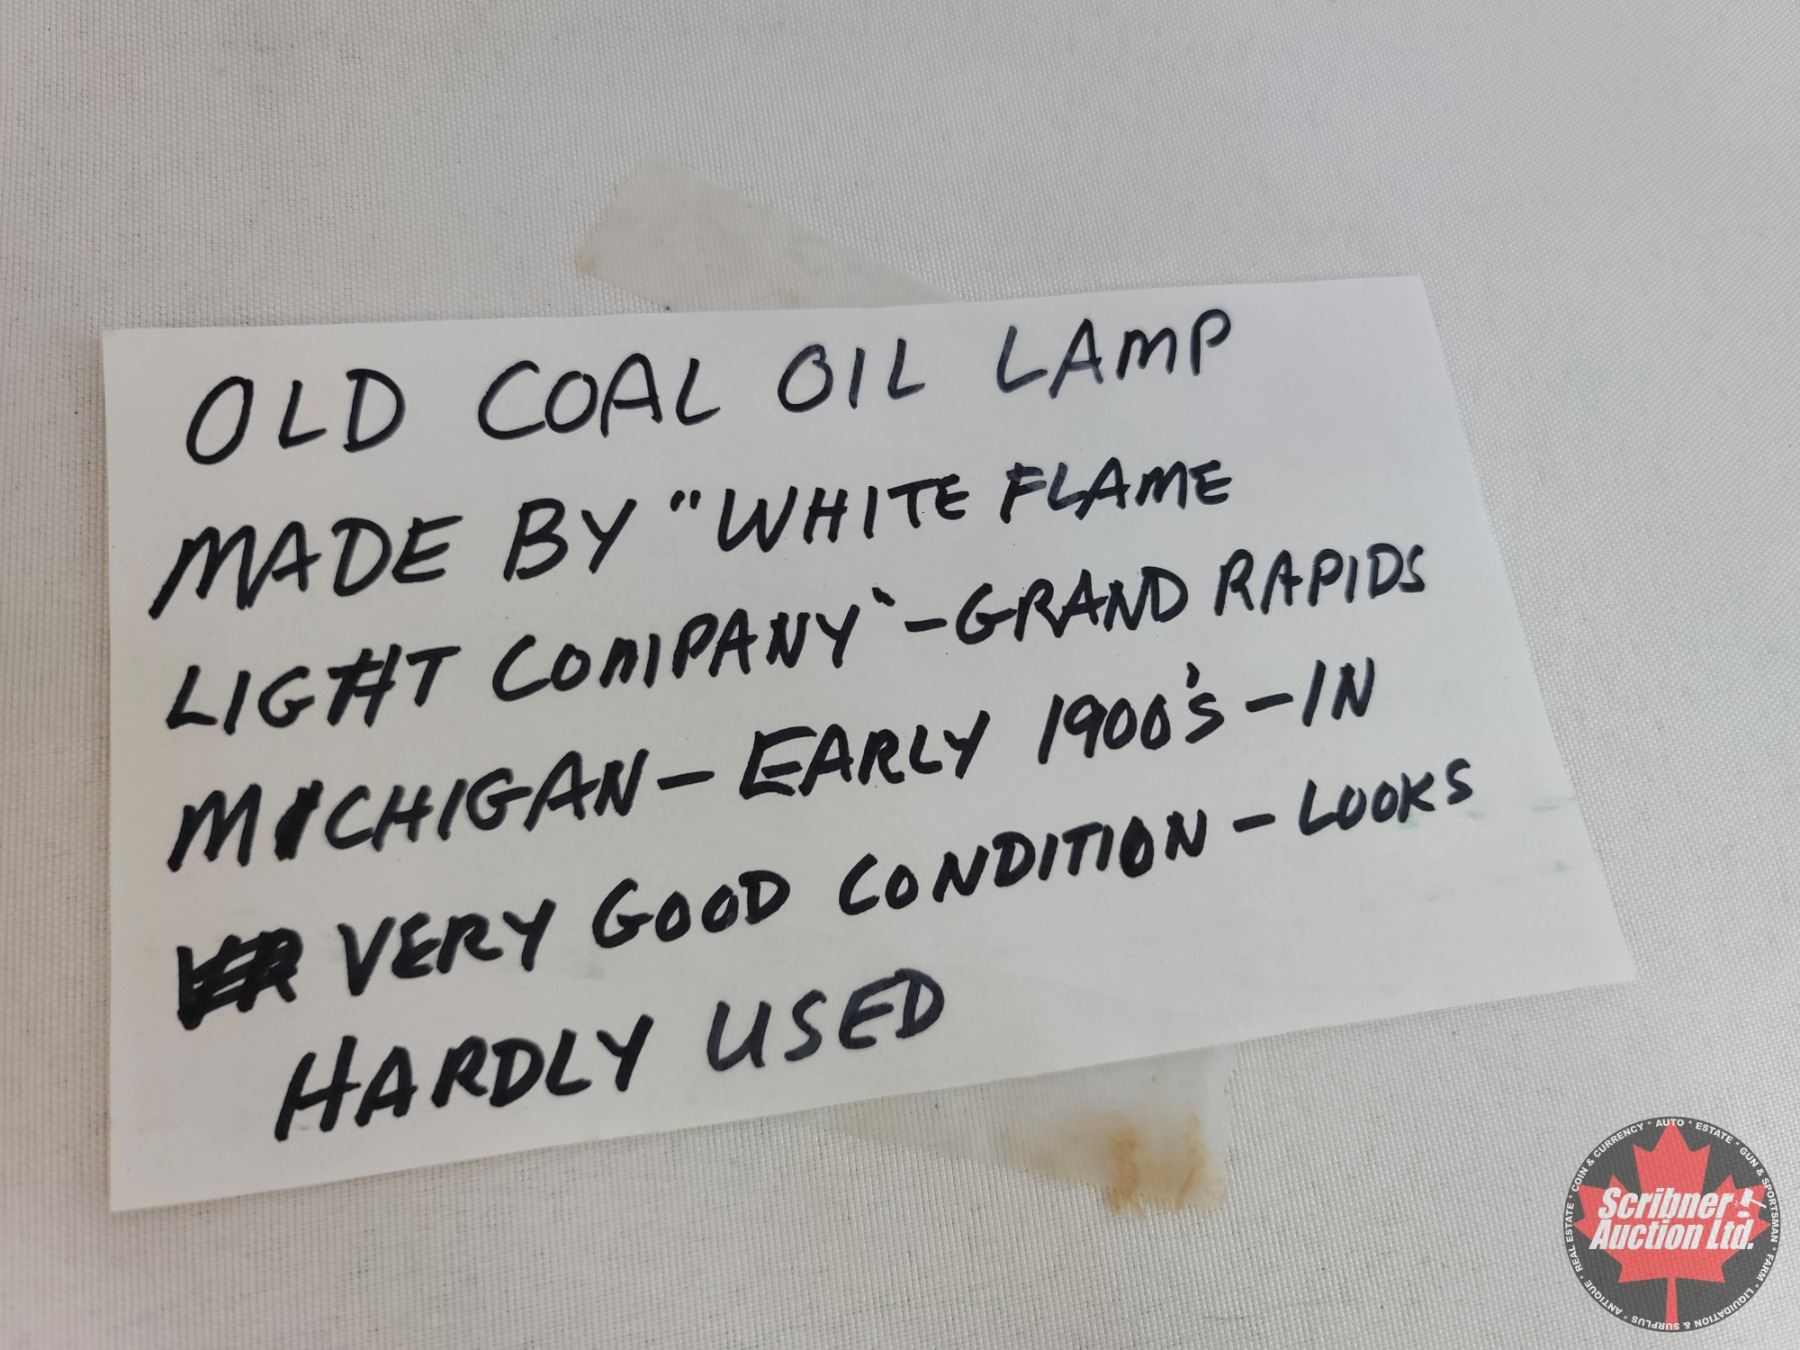 OLD COAL OIL LAMP
MADE BY "WHITE FLAME
LIGHT COMPANY" - GRAND RAPIDS
MICHIGAN - EARLY 1900's - IN
VERY GOOD CONDITION - LOOKS
HARDLY USED
COIN & CURRENCY * AUTO * ESTATE * GUN & SPORTSMAN * FARM * LIQUIDATION & SURPLUS * ANTIQUE * REAL ESTATE *
Scribner
Auction Ltd.